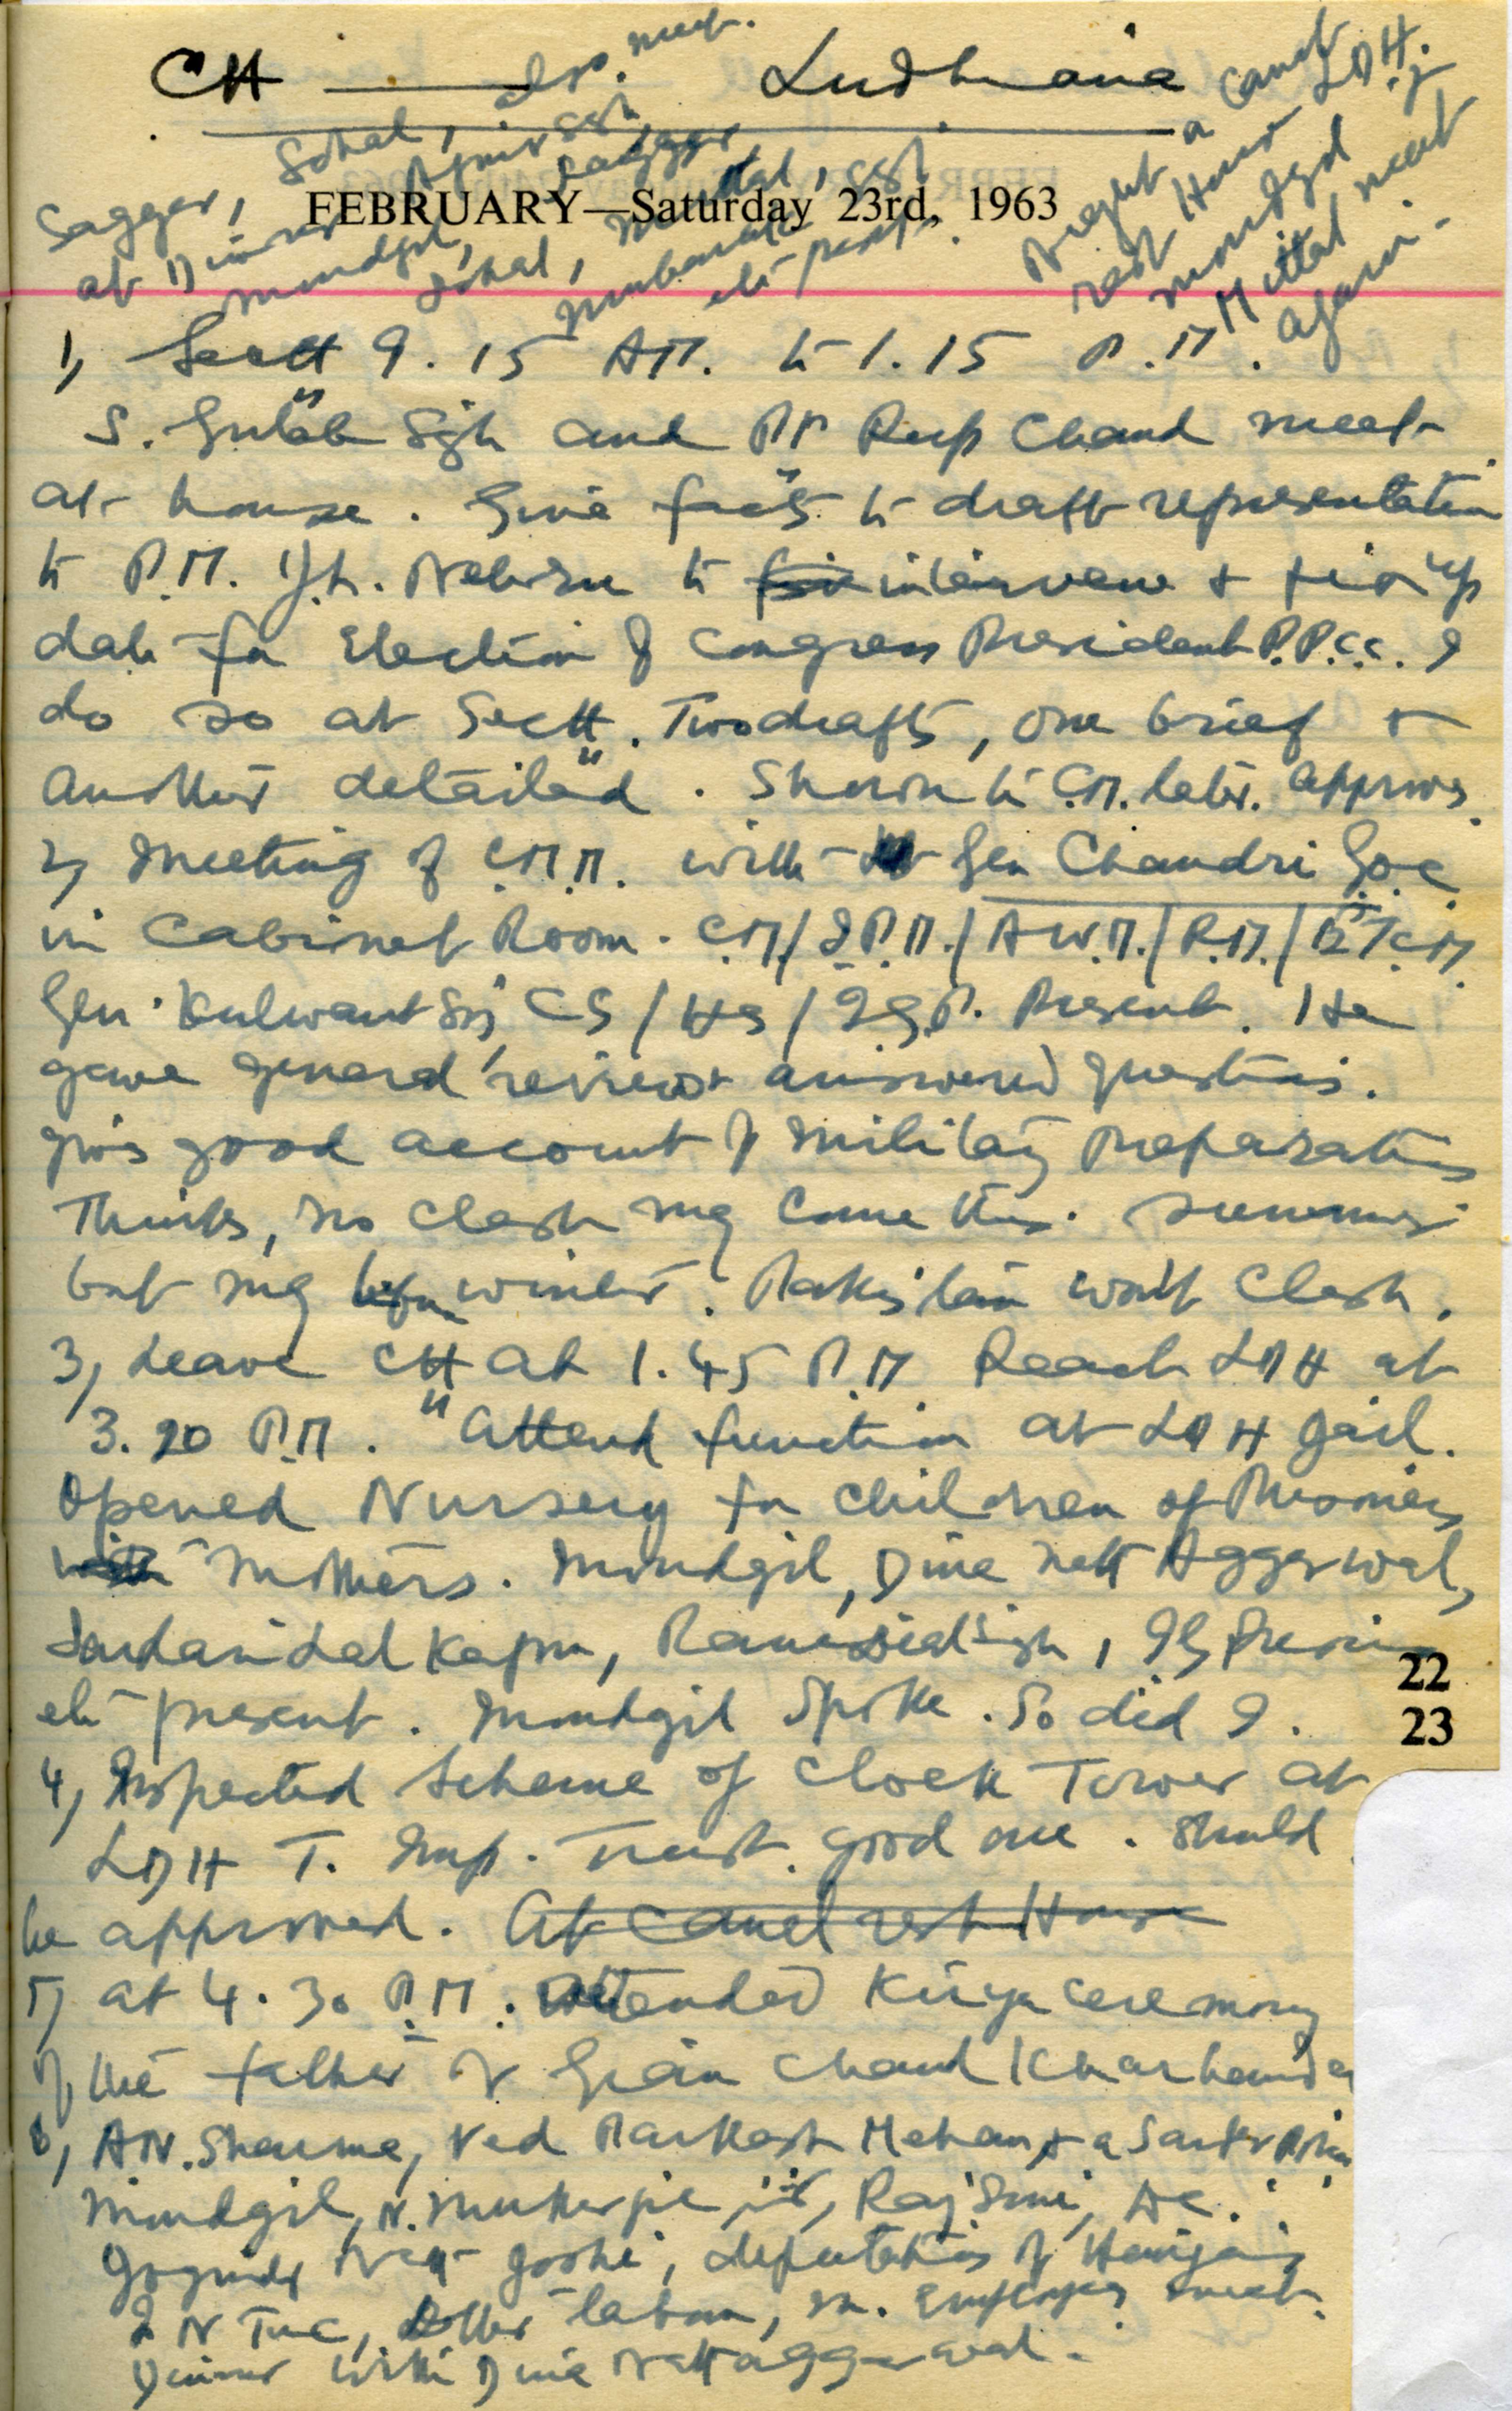 CH ——— Ludhiana
also meet.
Saggar, Sohal, Ajmir Sgh
at Dinner
Mundgil, Sohal, Mittal, Sgh
etc present.
Night at Canal
rest House LDH.
Moudgil
Mittal meet
again.
FEBRUARY—Saturday 23rd, 1963
1, Sectt 9.15 AM. to 1.15 P.M.
S. Gulab Sgh and Pt Rup Chand meet
at house. Give facts to draft representation
to P.M. J.L. Nehru to intervene + fix up
date for Election of Congress President P.P.C.C. I
do so at Sectt. Two drafts, one brief +
another detailed. Shown to C.M. later. Approves.
2, Meeting of C.M.M. with Gen Chaudri Goc
in Cabinet Room. C.M/I.P.M./A.W.M./R.M./
Gen. Kulwant Sgh, CS/HS/IGP. Present. He
gave general review + answered questions.
Gives good account of military preparations
Thinks, no clash may come this summer
but may winter. Pakistan won't clash.
3, Leave CH at 1.45 P.M Reach LDH at
3.20 P.M. Attend function at LDH Jail.
Opened Nursery for children of Prisoners
with mothers. Moudgil, Dina Nath Aggarwal,
Sardari Lal Kapur, Singh, IG Prisons
etc present. Moudgil spoke. So did I.
4, Inspected scheme of Clock Tower at
LDH T. Imp. Trust. Good one. Should
be approved. At Canal rest House
5, at 4.30 P.M. Attended Kirya ceremony
of the father of Gian Chand Kharbanda
6, A.N. Sharma, Ved Parkash Mehan, + a
Moudgil, N. Mukerjie, Raj Soni, DC.
Joginder Nath Joshi, deputation of Harijans
INTUC, other labour, M. Employees meet.
Dinner with Dina Nath Aggarwal.
22
23